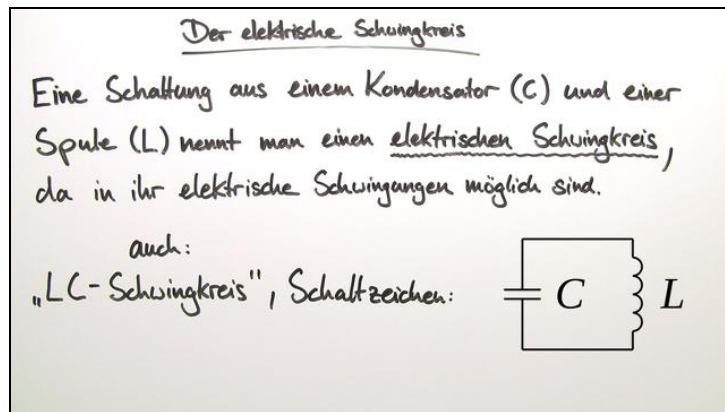 Der elektrische Schwingkreis
Eine Schaltung aus einem Kondensator (C) und einer
Spule (L) nennt man einen elektrischen Schwingkreis,
da in ihr elektrische Schwingungen möglich sind.
auch:
„LC-Schwingkreis", Schaltzeichen:
C L